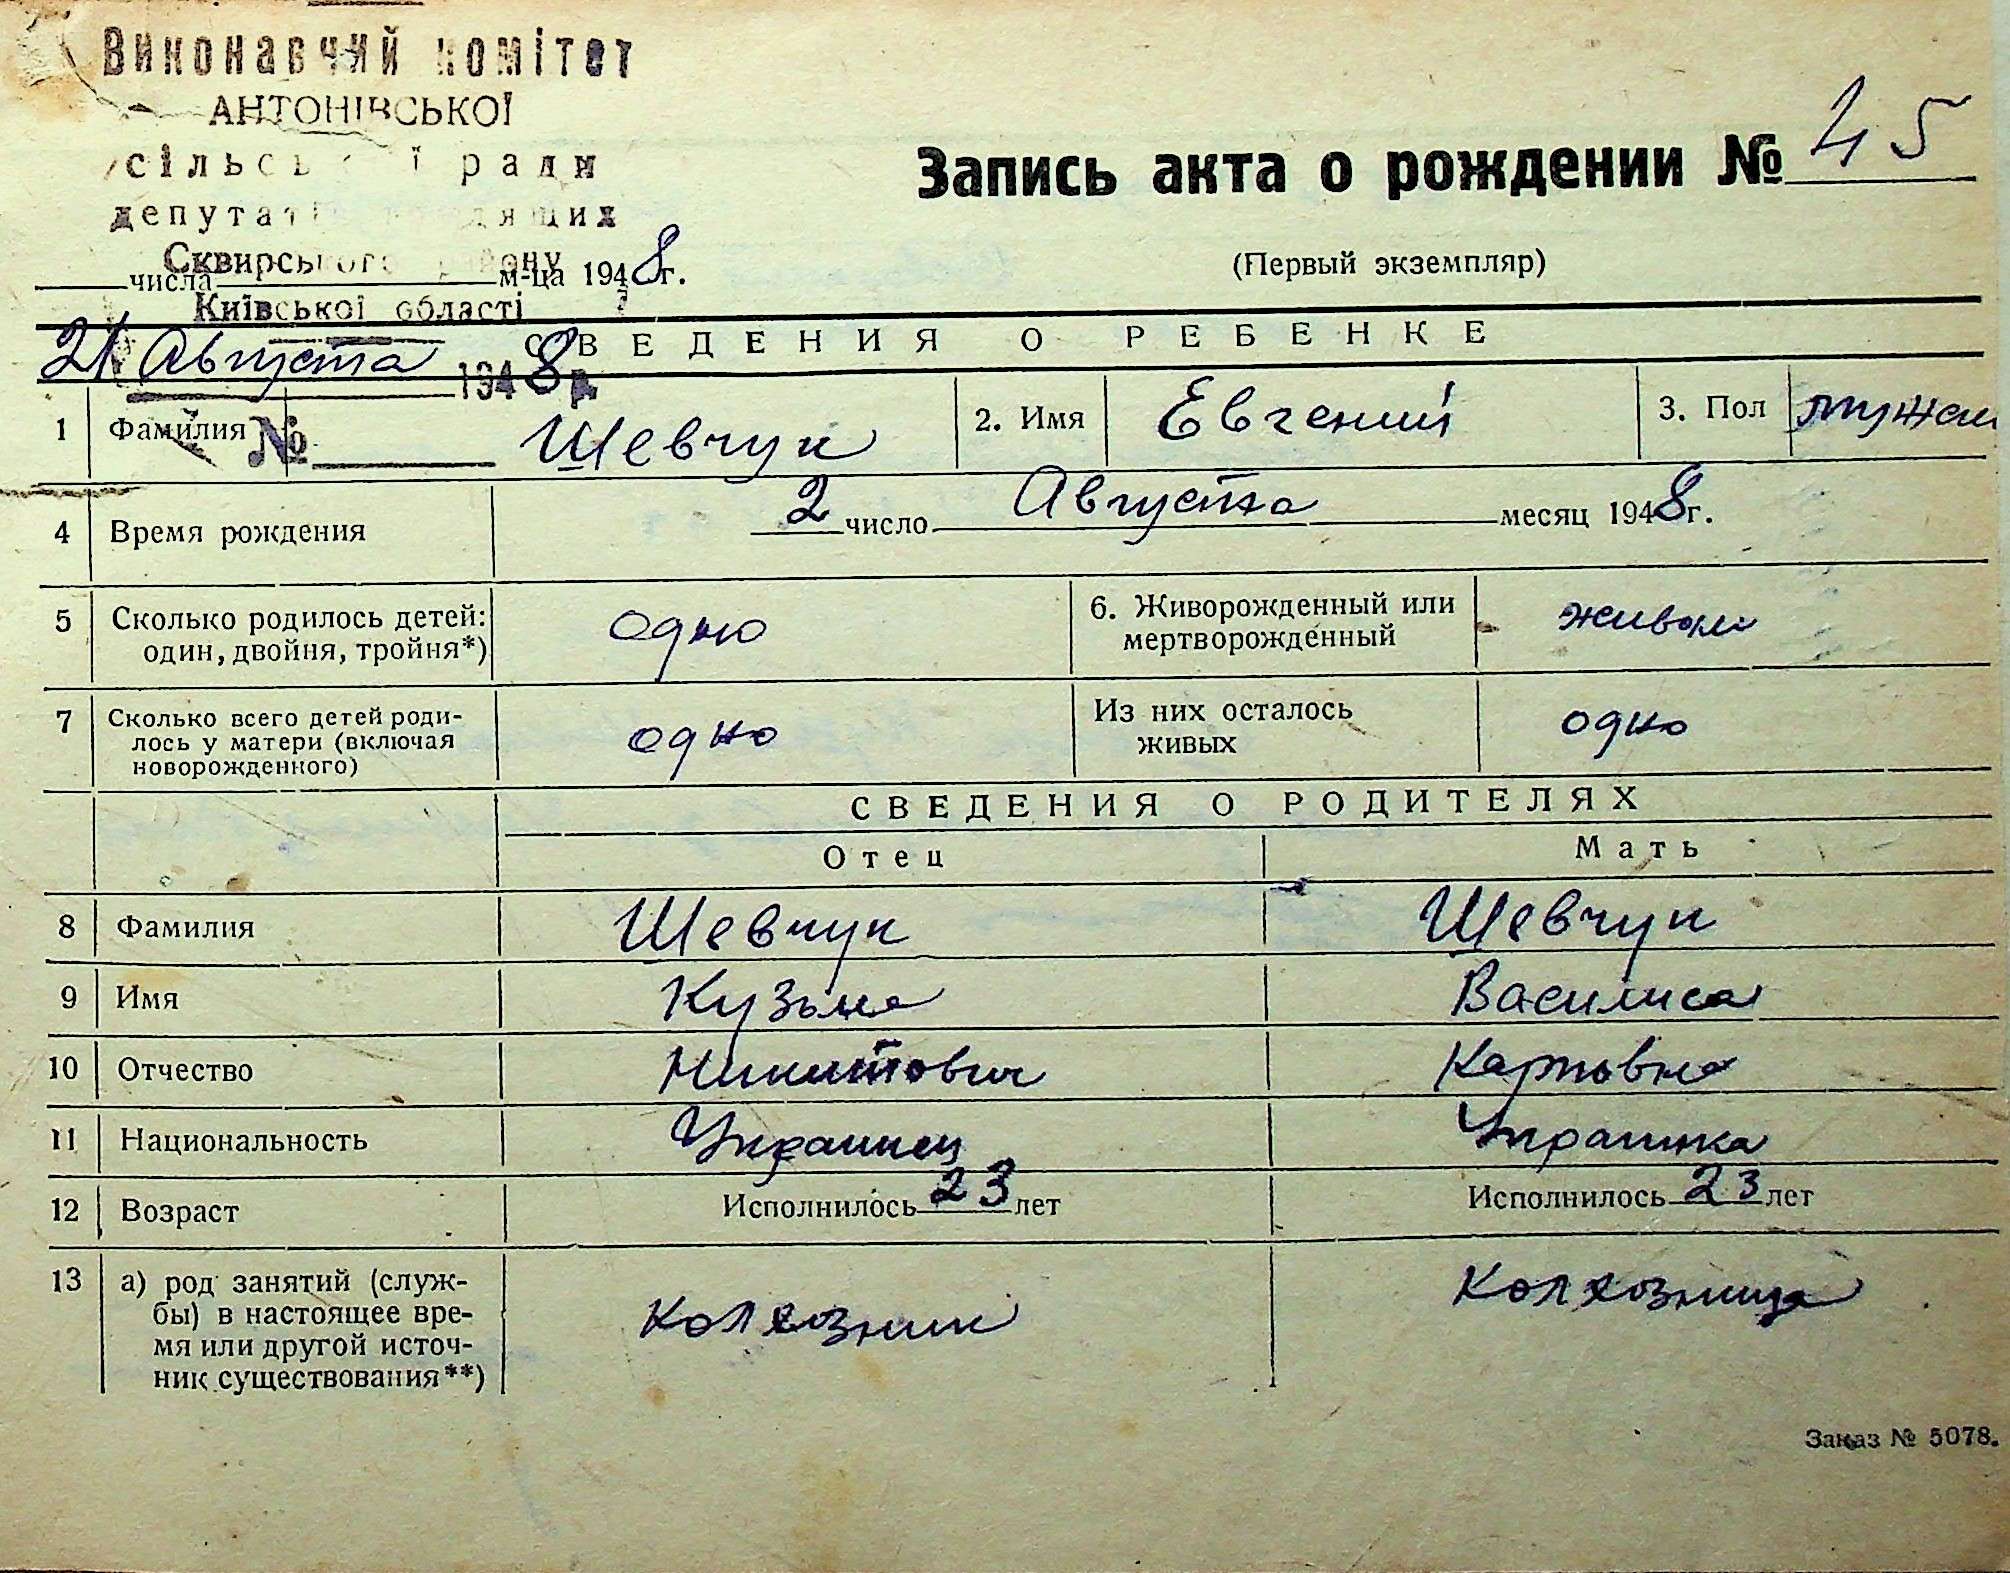 Виконавчий комітет
АНТОНІВСЬКОЇ
сільської ради
депутатів трудящих
Сквирського району
Київської області
числа м-ца 1948 г.
21 Августа 1948 р.
№
Запись акта о рождении № 45
(Первый экземпляр)
СВЕДЕНИЯ О РЕБЕНКЕ
1 Фамилия Шевчук 2. Имя Евгений 3. Пол мужск
4 Время рождения 2 число Августа месяц 1948 г.
5 Сколько родилось детей: один, двойня, тройня*) одно 6. Живорожденный или мертворожденный живой
7 Сколько всего детей роди-
лось у матери (включая
новорожденного) одно Из них осталось живых одно
СВЕДЕНИЯ О РОДИТЕЛЯХ
Отец Мать
8 Фамилия Шевчук Шевчук
9 Имя Кузьма Василиса
10 Отчество Никитович Карповна
11 Национальность Украинец Украинка
12 Возраст Исполнилось 23 лет Исполнилось 23 лет
13 а) род занятий (служ-
бы) в настоящее вре-
мя или другой источ-
ник существования**) колхозник колхозница
Заказ № 5078.